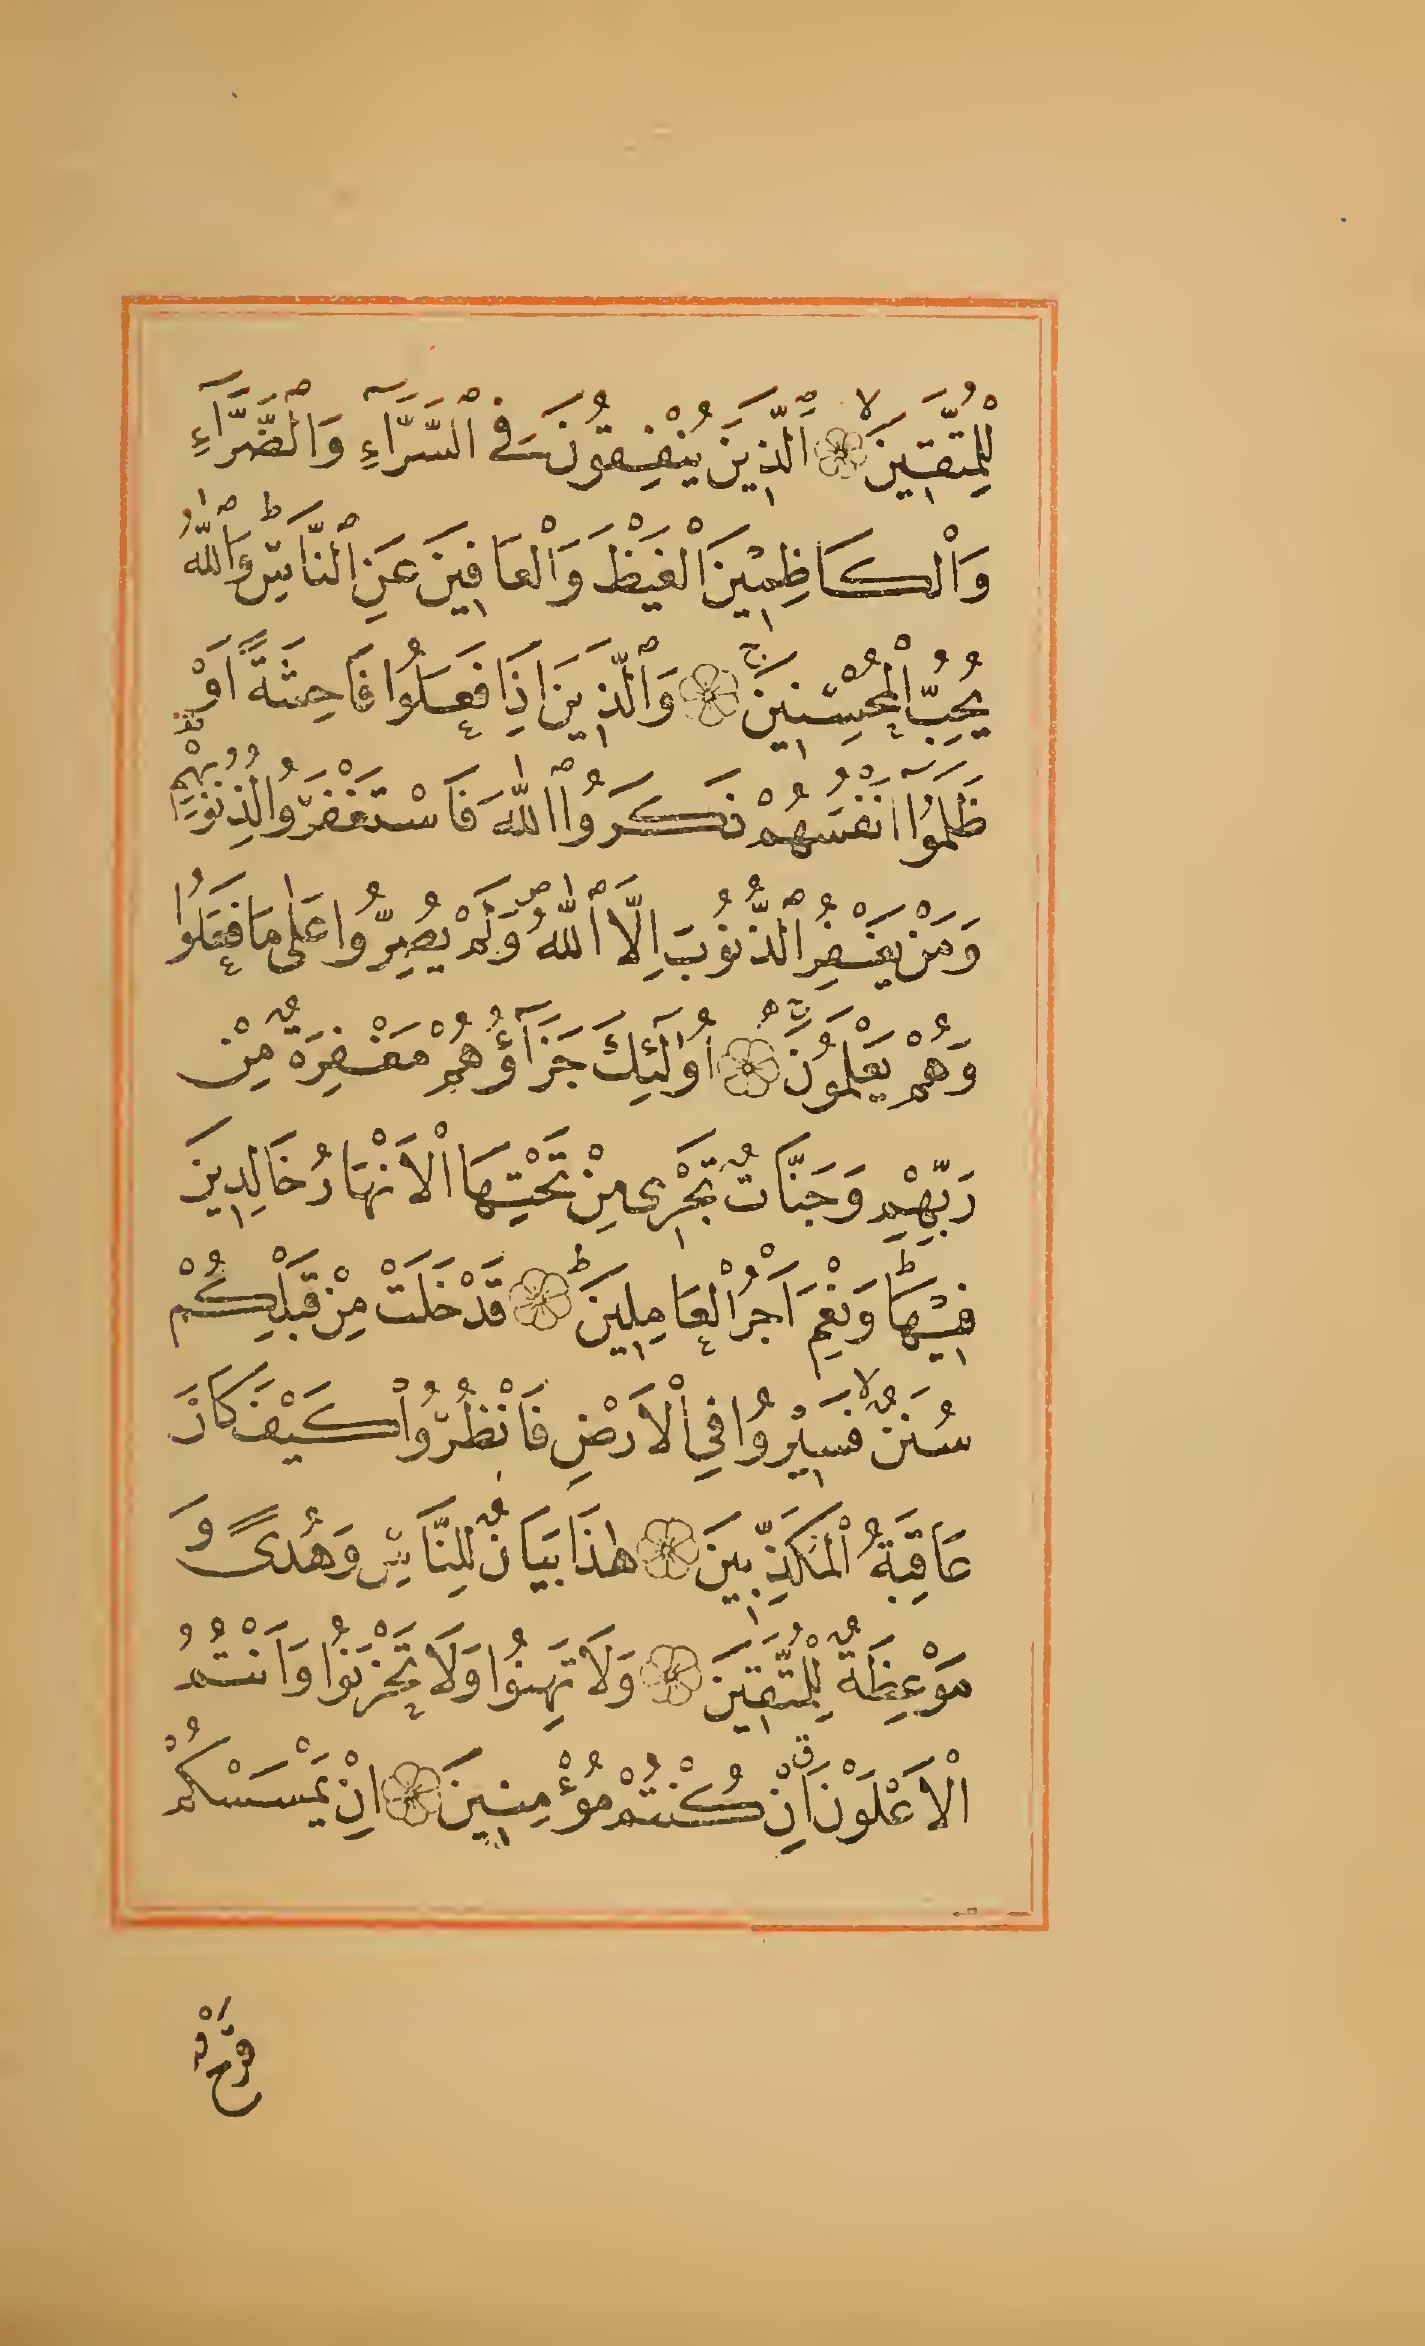 لِلْمُتَّقِينَ ۝ اَلَّذِينَ يُنْفِقُونَ فِي السَّرَّآءِ وَالضَّرَّآءِ
وَالْكَاظِمِينَ الْغَيْظَ وَالْعَافِينَ عَنِ النَّاسِ ط وَاللّٰهُ
يُحِبُّ الْمُحْسِنِينَ ج ۝ وَالَّذِينَ اِذَا فَعَلُوا فَاحِشَةً اَوْ
ظَلَمُوٓا اَنْفُسَهُمْ ذَكَرُوا اللّٰهَ فَاسْتَغْفَرُوا لِذُنُوبِهِمْ
وَمَنْ يَغْفِرُ الذُّنُوبَ اِلَّا اللّٰهُ وَلَمْ يُصِرُّوا عَلٰى مَا فَعَلُوا
وَهُمْ يَعْلَمُونَ ۝ اُولٰٓئِكَ جَزَآؤُهُمْ مَغْفِرَةٌ مِنْ
رَبِّهِمْ وَجَنَّاتٌ تَجْرِى مِنْ تَحْتِهَا الْاَنْهَارُ خَالِدِينَ
فِيهَا ط وَنِعْمَ اَجْرُ الْعَامِلِينَ ط ۝ قَدْ خَلَتْ مِنْ قَبْلِكُمْ
سُنَنٌ لا فَسِيرُوا فِي الْاَرْضِ فَانْظُرُوا كَيْفَ كَانَ
عَاقِبَةُ الْمُكَذِّبِينَ ۝ هٰذَا بَيَانٌ لِلنَّاسِ وَهُدىً وَ
مَوْعِظَةٌ لِلْمُتَّقِينَ ۝ وَلَا تَهِنُوا وَلَا تَحْزَنُوا وَاَنْتُمُ
الْاَعْلَوْنَ اِنْ كُنْتُمْ مُؤْمِنِينَ ۝ اِنْ يَمْسَسْكُمْ
قَرْحٌ